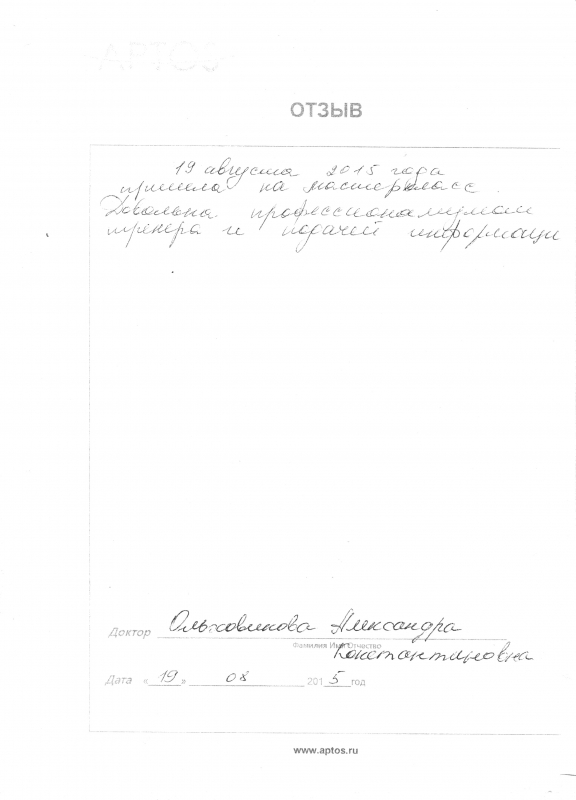 APTOS
ОТЗЫВ
19 августа 2015 года
пришла на мастер класс.
Довольна профессионализмом
тренера и подачей информаци
Доктор Ольховикова Александра
Фамилия Имя Отчество
Константиновна
Дата «19» 08 2015 год
www.aptos.ru